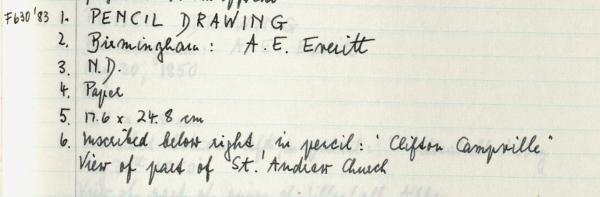 F630'83 1. PENCIL DRAWING
2. Birmingham: A. E. Everitt
3. N.D.
4. Paper
5. 17.6 x 24.8 cm
6. Inscribed below right in pencil: 'Clifton Campville"
View of part of St. Andrew Church